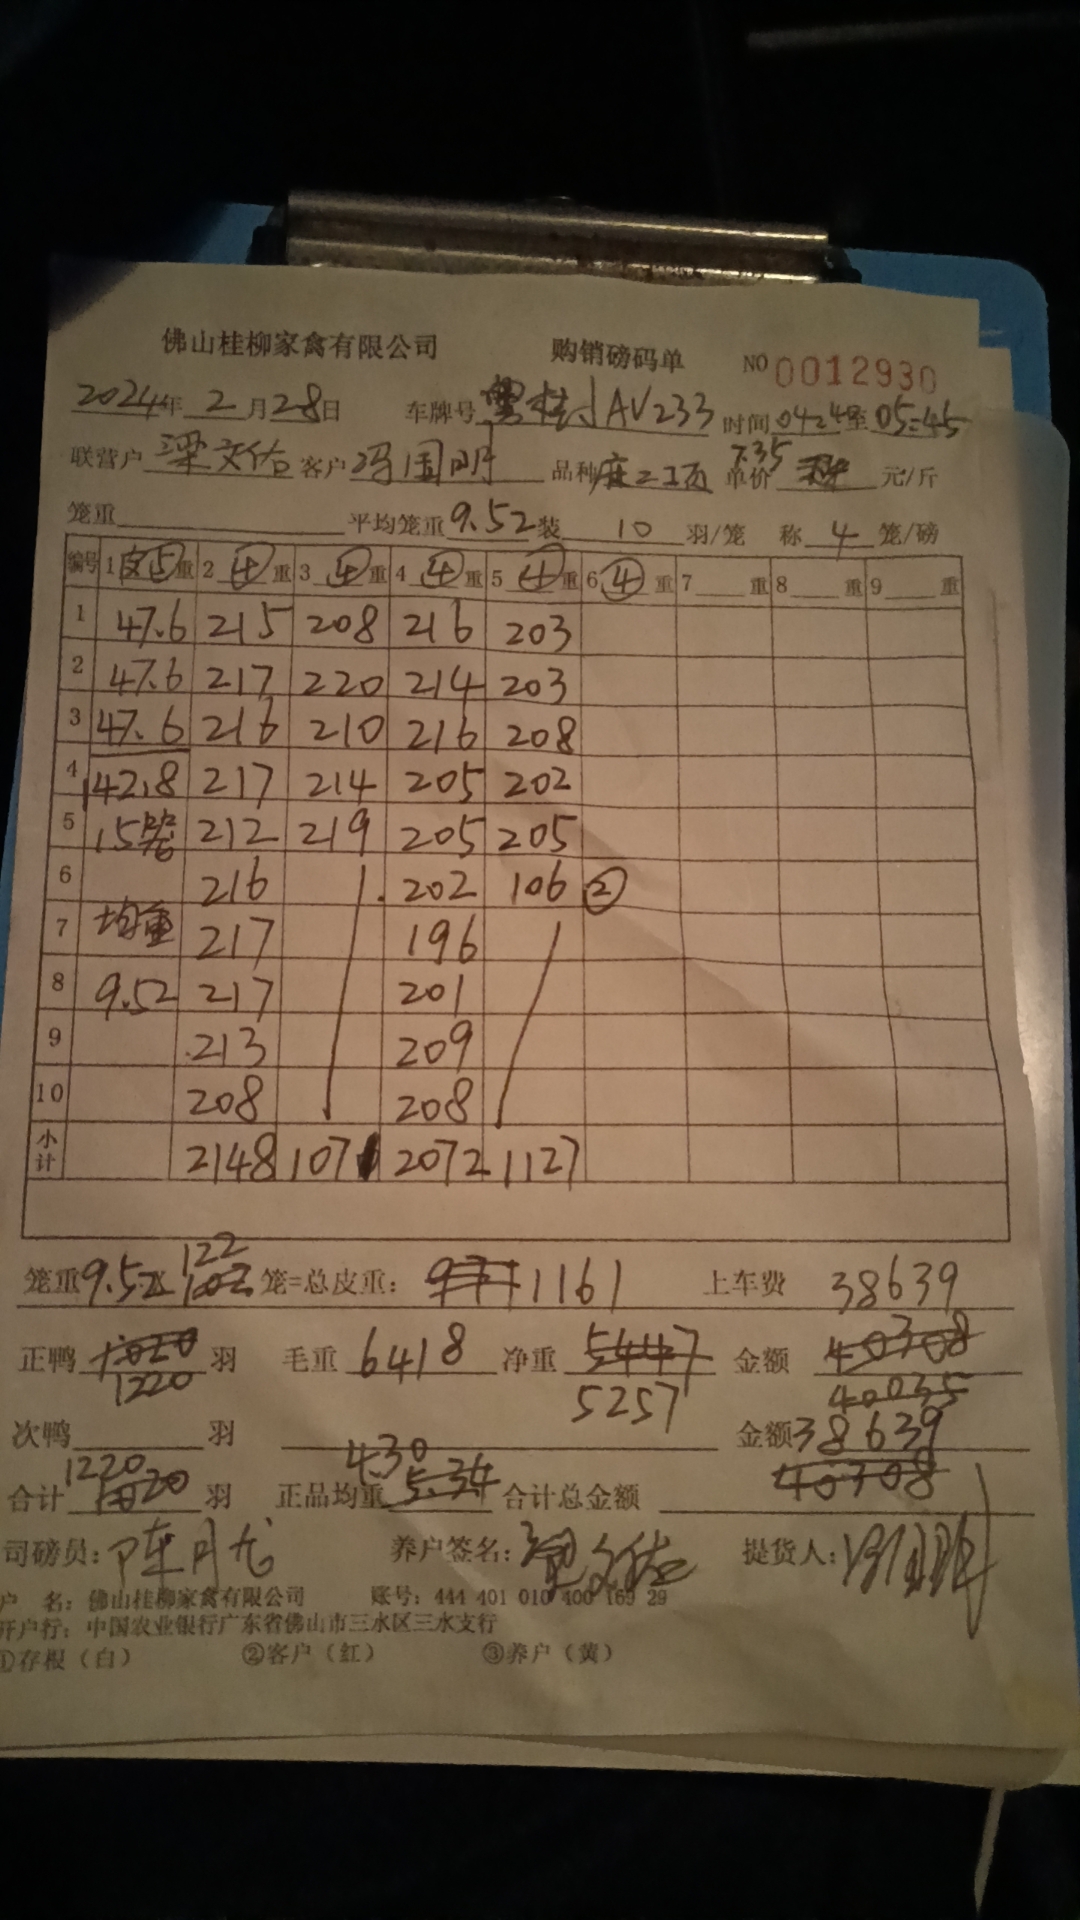 佛山桂柳家禽有限公司 购销磅码单 NO 0012930
2024年 2月28日 车牌号 AV233 时间 0424至 05:45
联营户 梁文佑 客户 冯国明 品种 麻二项 单价 7.35 元/斤
笼重 平均笼重 9.52 装 10 羽/笼 称 4 笼/磅
编号 1 皮⑤ 重 2 ④ 重 3 ④ 重 4 ④ 重 5 ④ 重 6 ④ 重 7 重 8 重 9 重
1 47.6 215 208 216 203
2 47.6 217 220 214 203
3 47.6 216 210 216 208
4 142.8 217 214 205 202
5 15笼 212 219 205 205
6 216 202 106 ②
7 均重 217 196
8 9.52 217 201
9 213 209
10 208 208
小计 2148 1071 2072 1127
笼重 9.52 122 102 笼=总皮重: 971 1161 上车费 38639
正鸭 1020 羽 毛重 6418 净重 5447 金额 40308
1220 5257 40035
次鸭 羽 金额 38639
1220 4.30
合计 1020 羽 正品均重 5.34 合计总金额 40308
司磅员: 陈月龙 养户签名: 梁文佑 提货人:
户 名: 佛山桂柳家禽有限公司 账号: 444 401 010 400 169 29
开户行: 中国农业银行广东省佛山市三水区三水支行
①存根(白) ②客户(红) ③养户(黄)